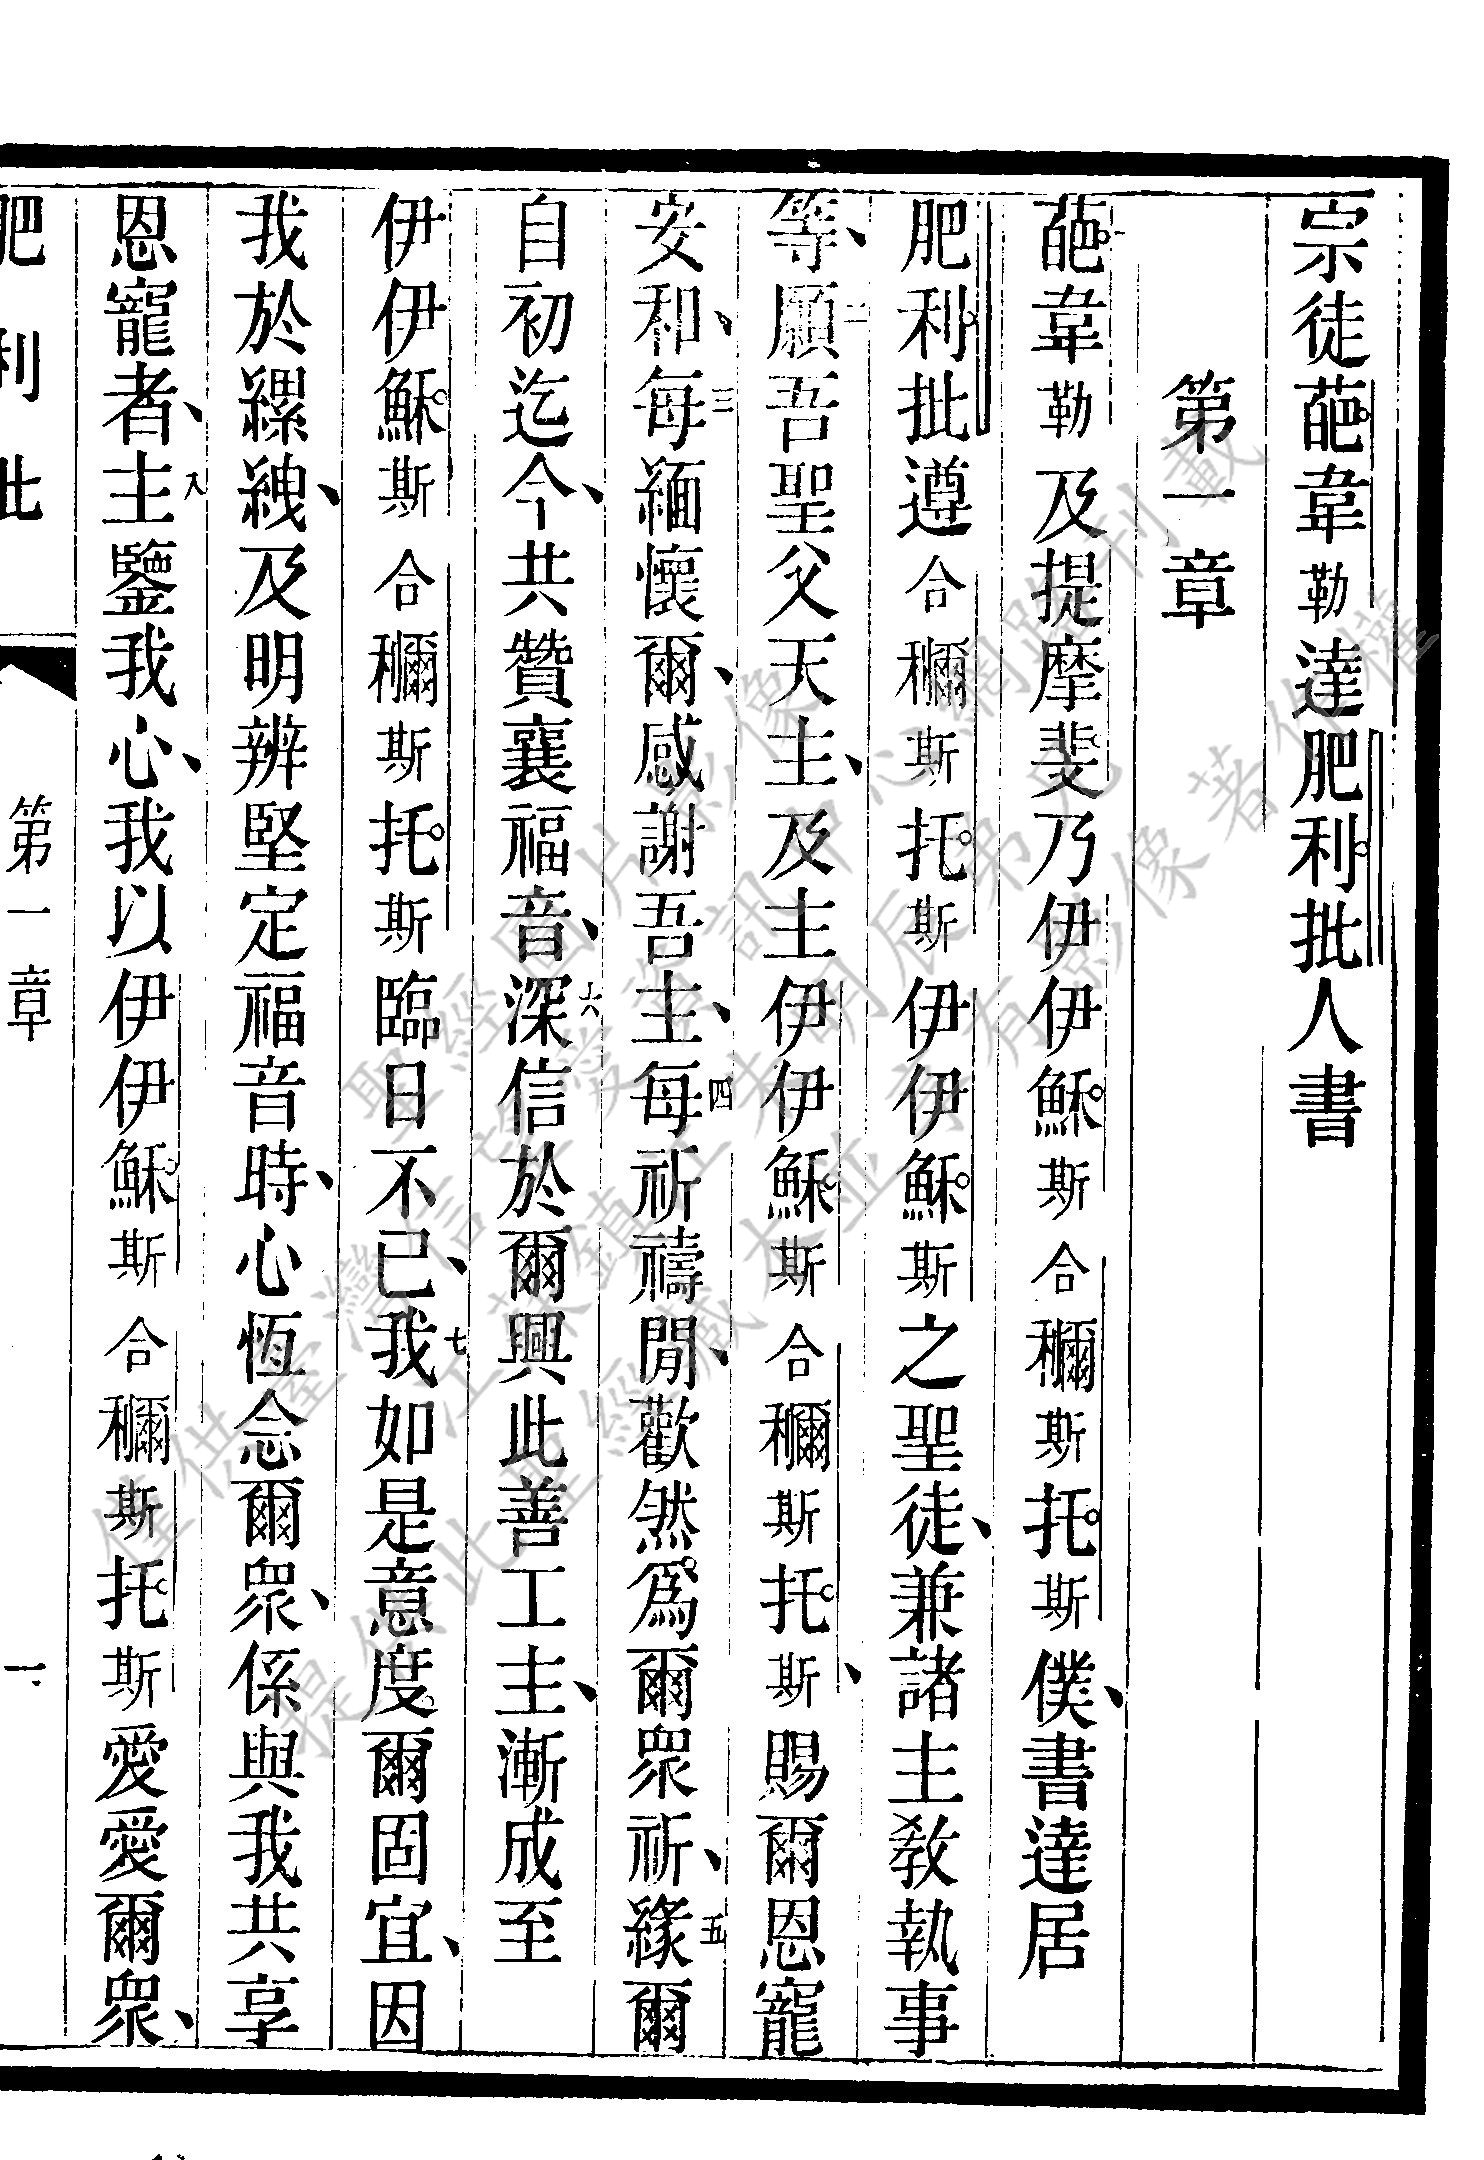 宗徒葩韋勒達肥利批人書
第一章
一葩韋勒及提摩斐乃伊伊穌斯合穪斯托斯僕、書達居
肥利批遵合穪斯托斯伊伊穌斯之聖徒、兼諸主教執事
等、二願吾聖父天主、及主伊伊穌斯合穪斯托斯、賜爾恩寵
安和、三每緬懷爾、感謝吾主、四每祈禱閒、歡然爲爾眾祈、五緣爾
自初迄今、共贊襄福音、六深信於爾興此善工主、漸成至
伊伊穌斯合穪斯托斯臨日不已、七我如是意度爾固宜、因
我於縲絏、及明辨堅定福音時、心恆念爾眾、係與我共享
恩寵者、八主鑒我心、我以伊伊穌斯合穪斯托斯愛愛爾眾、
肥利批 第一章 一
僅供臺灣信望愛資訊中心網路刊載
聖經圖片影像
提供此聖經藏本並享有影像著作權